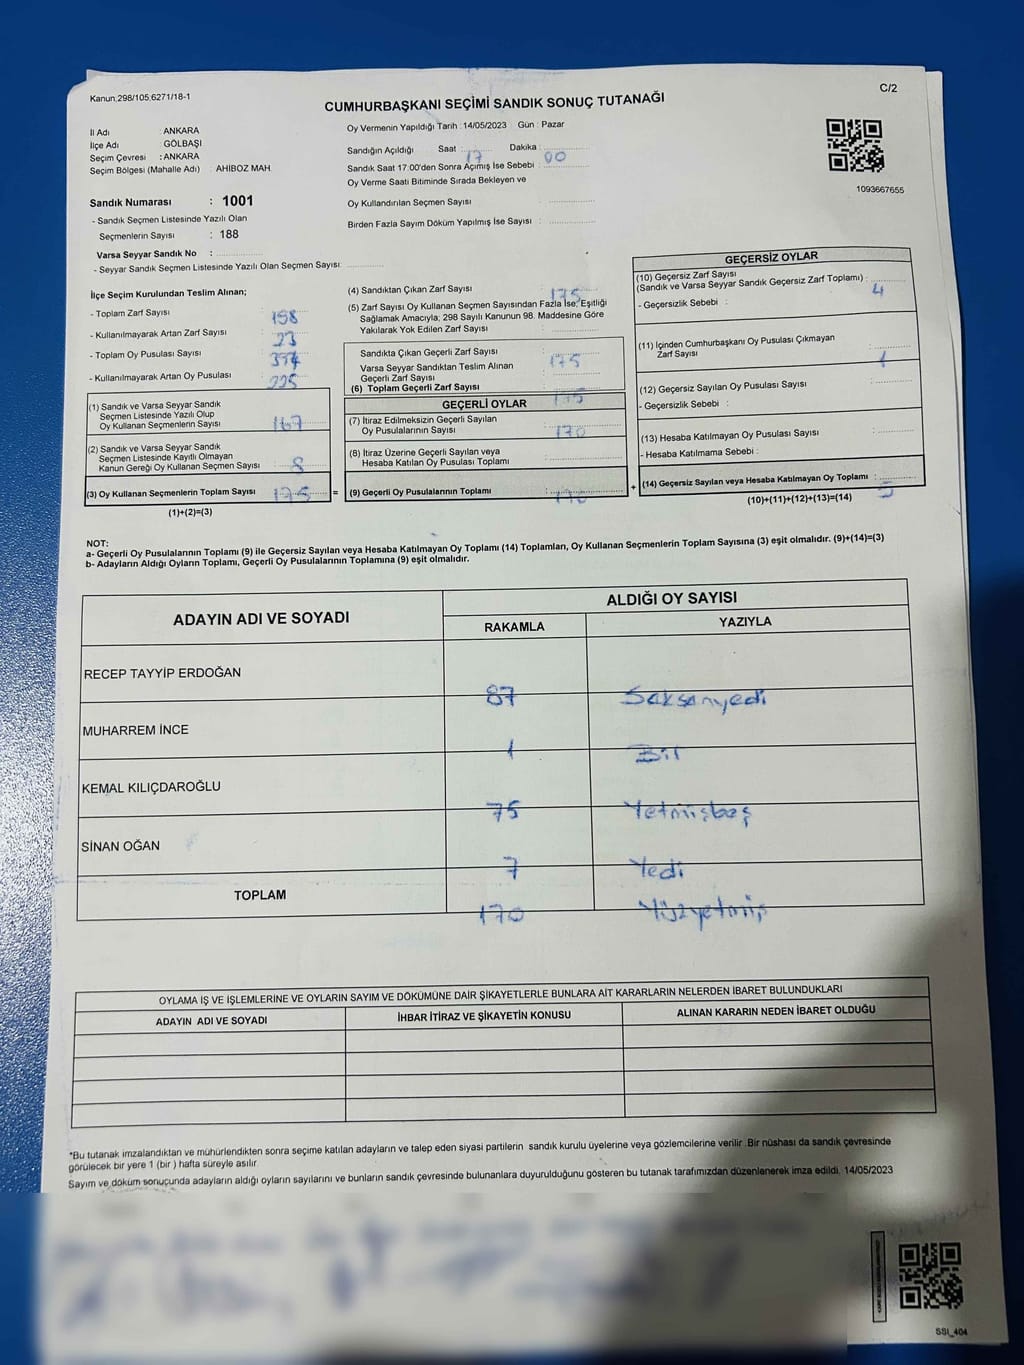 Kanun,298/105;6271/18-1
C/2
CUMHURBAŞKANI SEÇİMİ SANDIK SONUÇ TUTANAĞI
İl Adı : ANKARA
İlçe Adı : GÖLBAŞI
Seçim Çevresi : ANKARA
Seçim Bölgesi (Mahalle Adı) : AHİBOZ MAH
Sandık Numarası : 1001
- Sandık Seçmen Listesinde Yazılı Olan
Seçmenlerin Sayısı : 188
Varsa Seyyar Sandık No :
- Seyyar Sandık Seçmen Listesinde Yazılı Olan Seçmen Sayısı:
Oy Vermenin Yapıldığı Tarih :14/05/2023 Gün : Pazar
Sandığın Açıldığı Saat : 17 Dakika : 00
Sandık Saat 17:00'den Sonra Açımış İse Sebebi :
Oy Verme Saati Bitiminde Sırada Bekleyen ve
Oy Kullandırılan Seçmen Sayısı :
Birden Fazla Sayım Döküm Yapılmış İse Sayısı :
1093667655
İlçe Seçim Kurulundan Teslim Alınan;
- Toplam Zarf Sayısı : 198
- Kullanılmayarak Artan Zarf Sayısı : 23
- Toplam Oy Pusulası Sayısı :
- Kullanılmayarak Artan Oy Pusulası : 225
(1) Sandık ve Varsa Seyyar Sandık
Seçmen Listesinde Yazılı Olup
Oy Kullanan Seçmenlerin Sayısı : 167
(2) Sandık ve Varsa Seyyar Sandık
Seçmen Listesinde Kayıtlı Olmayan
Kanun Gereği Oy Kullanan Seçmen Sayısı : 8
(3) Oy Kullanan Seçmenlerin Toplam Sayısı : 175
(1)+(2)=(3)
(4) Sandıktan Çıkan Zarf Sayısı : 175
(5) Zarf Sayısı Oy Kullanan Seçmen Sayısından Fazla İse, Eşitliği
Sağlamak Amacıyla; 298 Sayılı Kanunun 98. Maddesine Göre
Yakılarak Yok Edilen Zarf Sayısı :
Sandıkta Çıkan Geçerli Zarf Sayısı : 175
Varsa Seyyar Sandıktan Teslim Alınan
Geçerli Zarf Sayısı :
(6) Toplam Geçerli Zarf Sayısı : 175
GEÇERLİ OYLAR
(7) İtiraz Edilmeksizin Geçerli Sayılan
Oy Pusulalarının Sayısı : 170
(8) İtiraz Üzerine Geçerli Sayılan veya
Hesaba Katılan Oy Pusulası Toplamı :
= (9) Geçerli Oy Pusulalarının Toplamı : 170
GEÇERSİZ OYLAR
(10) Geçersiz Zarf Sayısı
(Sandık ve Varsa Seyyar Sandık Geçersiz Zarf Toplamı) : 4
- Geçersizlik Sebebi :
(11) İçinden Cumhurbaşkanı Oy Pusulası Çıkmayan
Zarf Sayısı : 1
(12) Geçersiz Sayılan Oy Pusulası Sayısı :
- Geçersizlik Sebebi :
(13) Hesaba Katılmayan Oy Pusulası Sayısı :
- Hesaba Katılmama Sebebi :
+ (14) Geçersiz Sayılan veya Hesaba Katılmayan Oy Toplamı : 5
(10)+(11)+(12)+(13)=(14)
NOT:
a- Geçerli Oy Pusulalarının Toplamı (9) ile Geçersiz Sayılan veya Hesaba Katılmayan Oy Toplamı (14) Toplamları, Oy Kullanan Seçmenlerin Toplam Sayısına (3) eşit olmalıdır. (9)+(14)=(3)
b- Adayların Aldığı Oyların Toplamı, Geçerli Oy Pusulalarının Toplamına (9) eşit olmalıdır.
ADAYIN ADI VE SOYADI
ALDIĞI OY SAYISI
RAKAMLA YAZIYLA
RECEP TAYYİP ERDOĞAN 87 Seksanyedi
MUHARREM İNCE 1 Bir
KEMAL KILIÇDAROĞLU 75 Yetmişbeş
SİNAN OĞAN 7 Yedi
TOPLAM 170 Yüzyetmiş
OYLAMA İŞ VE İŞLEMLERİNE VE OYLARIN SAYIM VE DÖKÜMÜNE DAİR ŞİKAYETLERLE BUNLARA AİT KARARLARIN NELERDEN İBARET BULUNDUKLARI
ADAYIN ADI VE SOYADI İHBAR İTİRAZ VE ŞİKAYETİN KONUSU ALINAN KARARIN NEDEN İBARET OLDUĞU
*Bu tutanak imzalandıktan ve mühürlendikten sonra seçime katılan adayların ve talep eden siyasi partilerin sandık kurulu üyelerine veya gözlemcilerine verilir .Bir nüshası da sandık çevresinde
görülecek bir yere 1 (bir ) hafta süreyle asılır.
Sayım ve döküm sonuçunda adayların aldığı oyların sayılarını ve bunların sandık çevresinde bulunanlara duyurulduğunu gösteren bu tutanak tarafımızdan düzenlenerek imza edildi. 14/05/2023
SSI_404